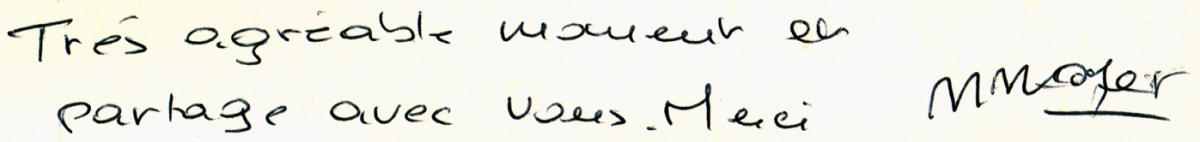 Trés agréable moment en
partage avec vous. Merci